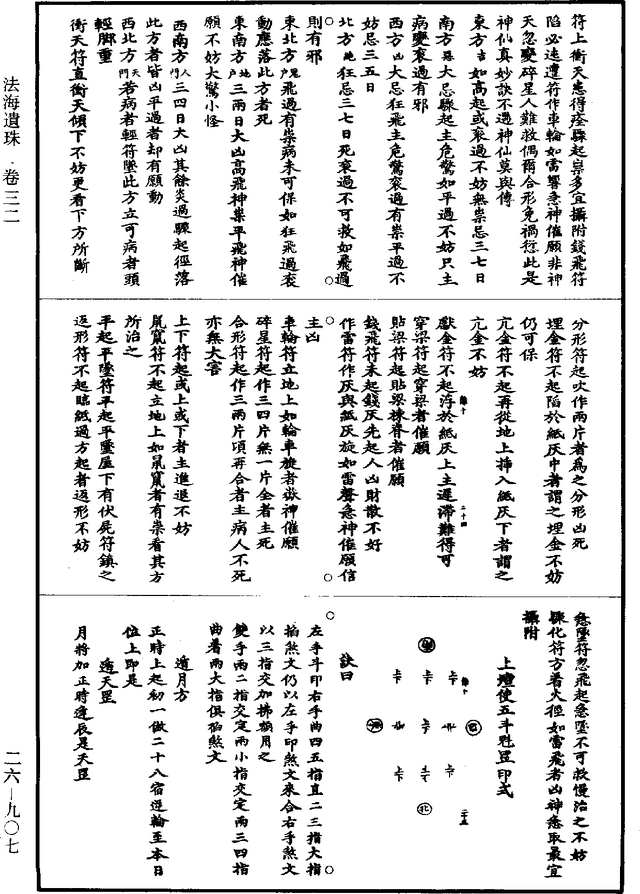 法海遺珠·卷三二
二六—九〇七
符上衝天患得痊驟起祟多宜攝附錢飛符
陷必速遭符作車輪如雷響急神催願非神
天忽變碎星人難救偶爾合形免禍愆此是
神仙真妙訣不遇神仙莫與傳
東方吉如高起或衮過不妨無祟忌三七日
南方忌大忌驟起主危驚如平過不妨只主
病變衮過有邪
西方凶大忌狂飛主危驚衮過有祟平過不
妨忌三五日
北方絶狂忌三七日死衮過不可救如飛過
則有邪
東北方鬼門飛過有祟病未可保如狂飛過衮
動應落此方者死
東南方地户三兩日大凶高飛神祟平飛神催
願不妨大驚小怪
西南方人門三四日大凶其餘炎過驟起徑落
此方者皆凶平過者却有願動
西北方天門若病者輕符墜此方立可病者頭
輕脚重
衝天符直衝天傾下不妨更看下方所斷
分形符起吹作兩片者為之分形凶死
埋金符不起陷於紙灰中者謂之埋金不妨
仍可保
亢金符不起再從地上揷入紙灰下者謂之
亢金不妨
獻金符不起浮於紙灰上主遲滯難得可
穿梁符起穿梁者催願
貼梁符起貼梁棟脊者催願
錢飛符未起錢灰先起人凶財散不好
作雷符作灰與紙灰旋如雷聲急神催願信
主凶
車輪符立地上如輪車旋者嶽神催願
碎星符起作三四片無一片全者主死
合形符起作三兩片頃再合者主病人不死
亦無大害
上下符起或上或下者主進退不妨
鼠竄符不起立地上如鼠竄者有祟看其方
所治之
平起平墜符平起平墜屋下有伏屍符鎮之
返形符不起臨紙過方起者返形不妨
急墜符忽飛起急墜不可救慢治之不妨
驟化符方着火徑如雷飛者凶神急取最宜
攝附
上壇使五斗魁罡印式
北
訣曰
左手斗印右手曲四五指直二三指大指
掐煞文仍以左手印煞文來合右手煞文
以三指交加拂額月之
雙手兩二指交定兩小指交定兩三四指
曲着兩大指俱掐煞文
遁月方
正時上起初一做二十八宿逆輪至本日
位上即是
遶天罡
月將加正時逢辰是天罡